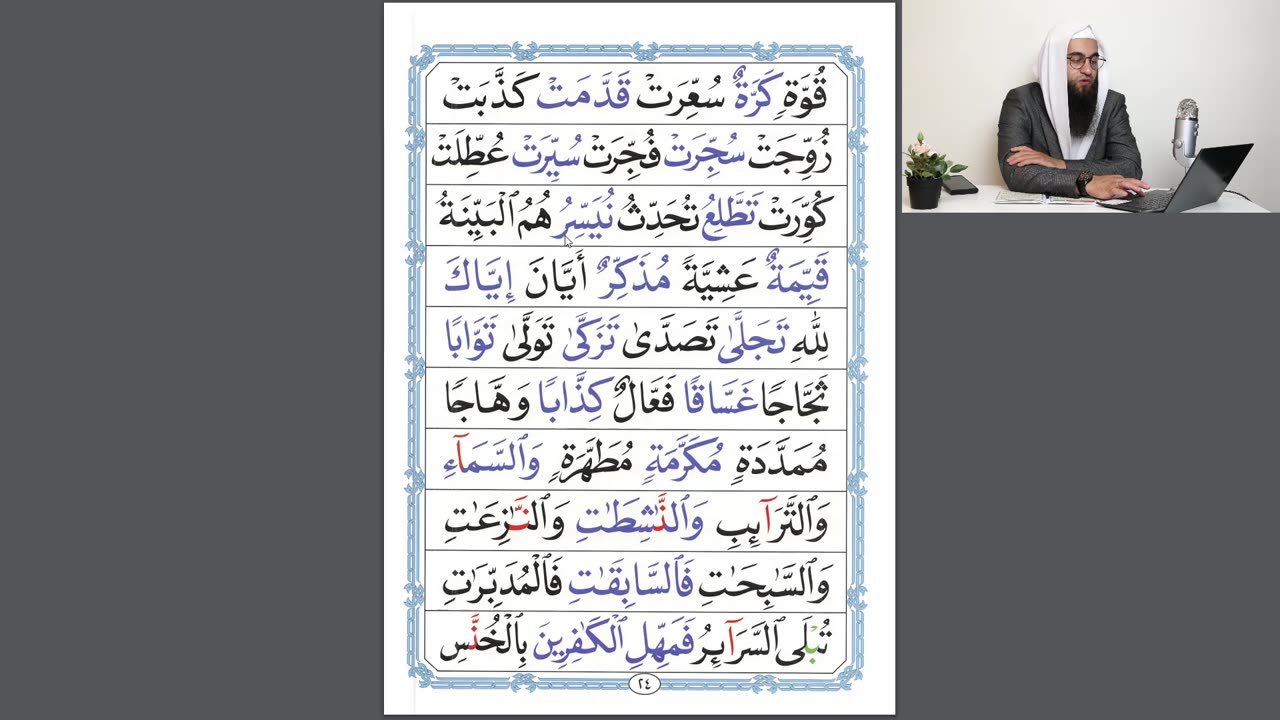 قُوَّةٍ كَرَّةٌ سُعِّرَتْ قَدَّمَتْ كَذَّبَتْ
زُوِّجَتْ سُجِّرَتْ فُجِّرَتْ سُيِّرَتْ عُطِّلَتْ
كُوِّرَتْ تَطَّلِعُ تُحَدِّثُ نُيَسِّرُ هُمُ ٱلْبَيِّنَةُ
قَيِّمَةٌ عَشِيَّةً مُذَكِّرٌ أَيَّانَ إِيَّاكَ
لِلّٰهِ تَجَلَّىٰ تَصَدَّىٰ تَزَكَّىٰ تَوَلَّىٰ تَوَّابًا
ثَجَّاجًا غَسَّاقًا فَعَّالٌ كِذَّابًا وَهَّاجًا
مُمَدَّدَةٍ مُكَرَّمَةٍ مُطَهَّرَةٍ وَٱلسَّمَآءِ
وَٱلتَّرَآئِبِ وَٱلنَّٰشِطَٰتِ وَٱلنَّٰزِعَٰتِ
وَٱلسَّٰبِحَٰتِ فَٱلسَّابِقَٰتِ فَٱلْمُدَبِّرَٰتِ
تُبْلَى ٱلسَّرَآئِرُ فَمَهِّلِ ٱلْكَٰفِرِينَ بِٱلْخُنَّسِ
٢٤